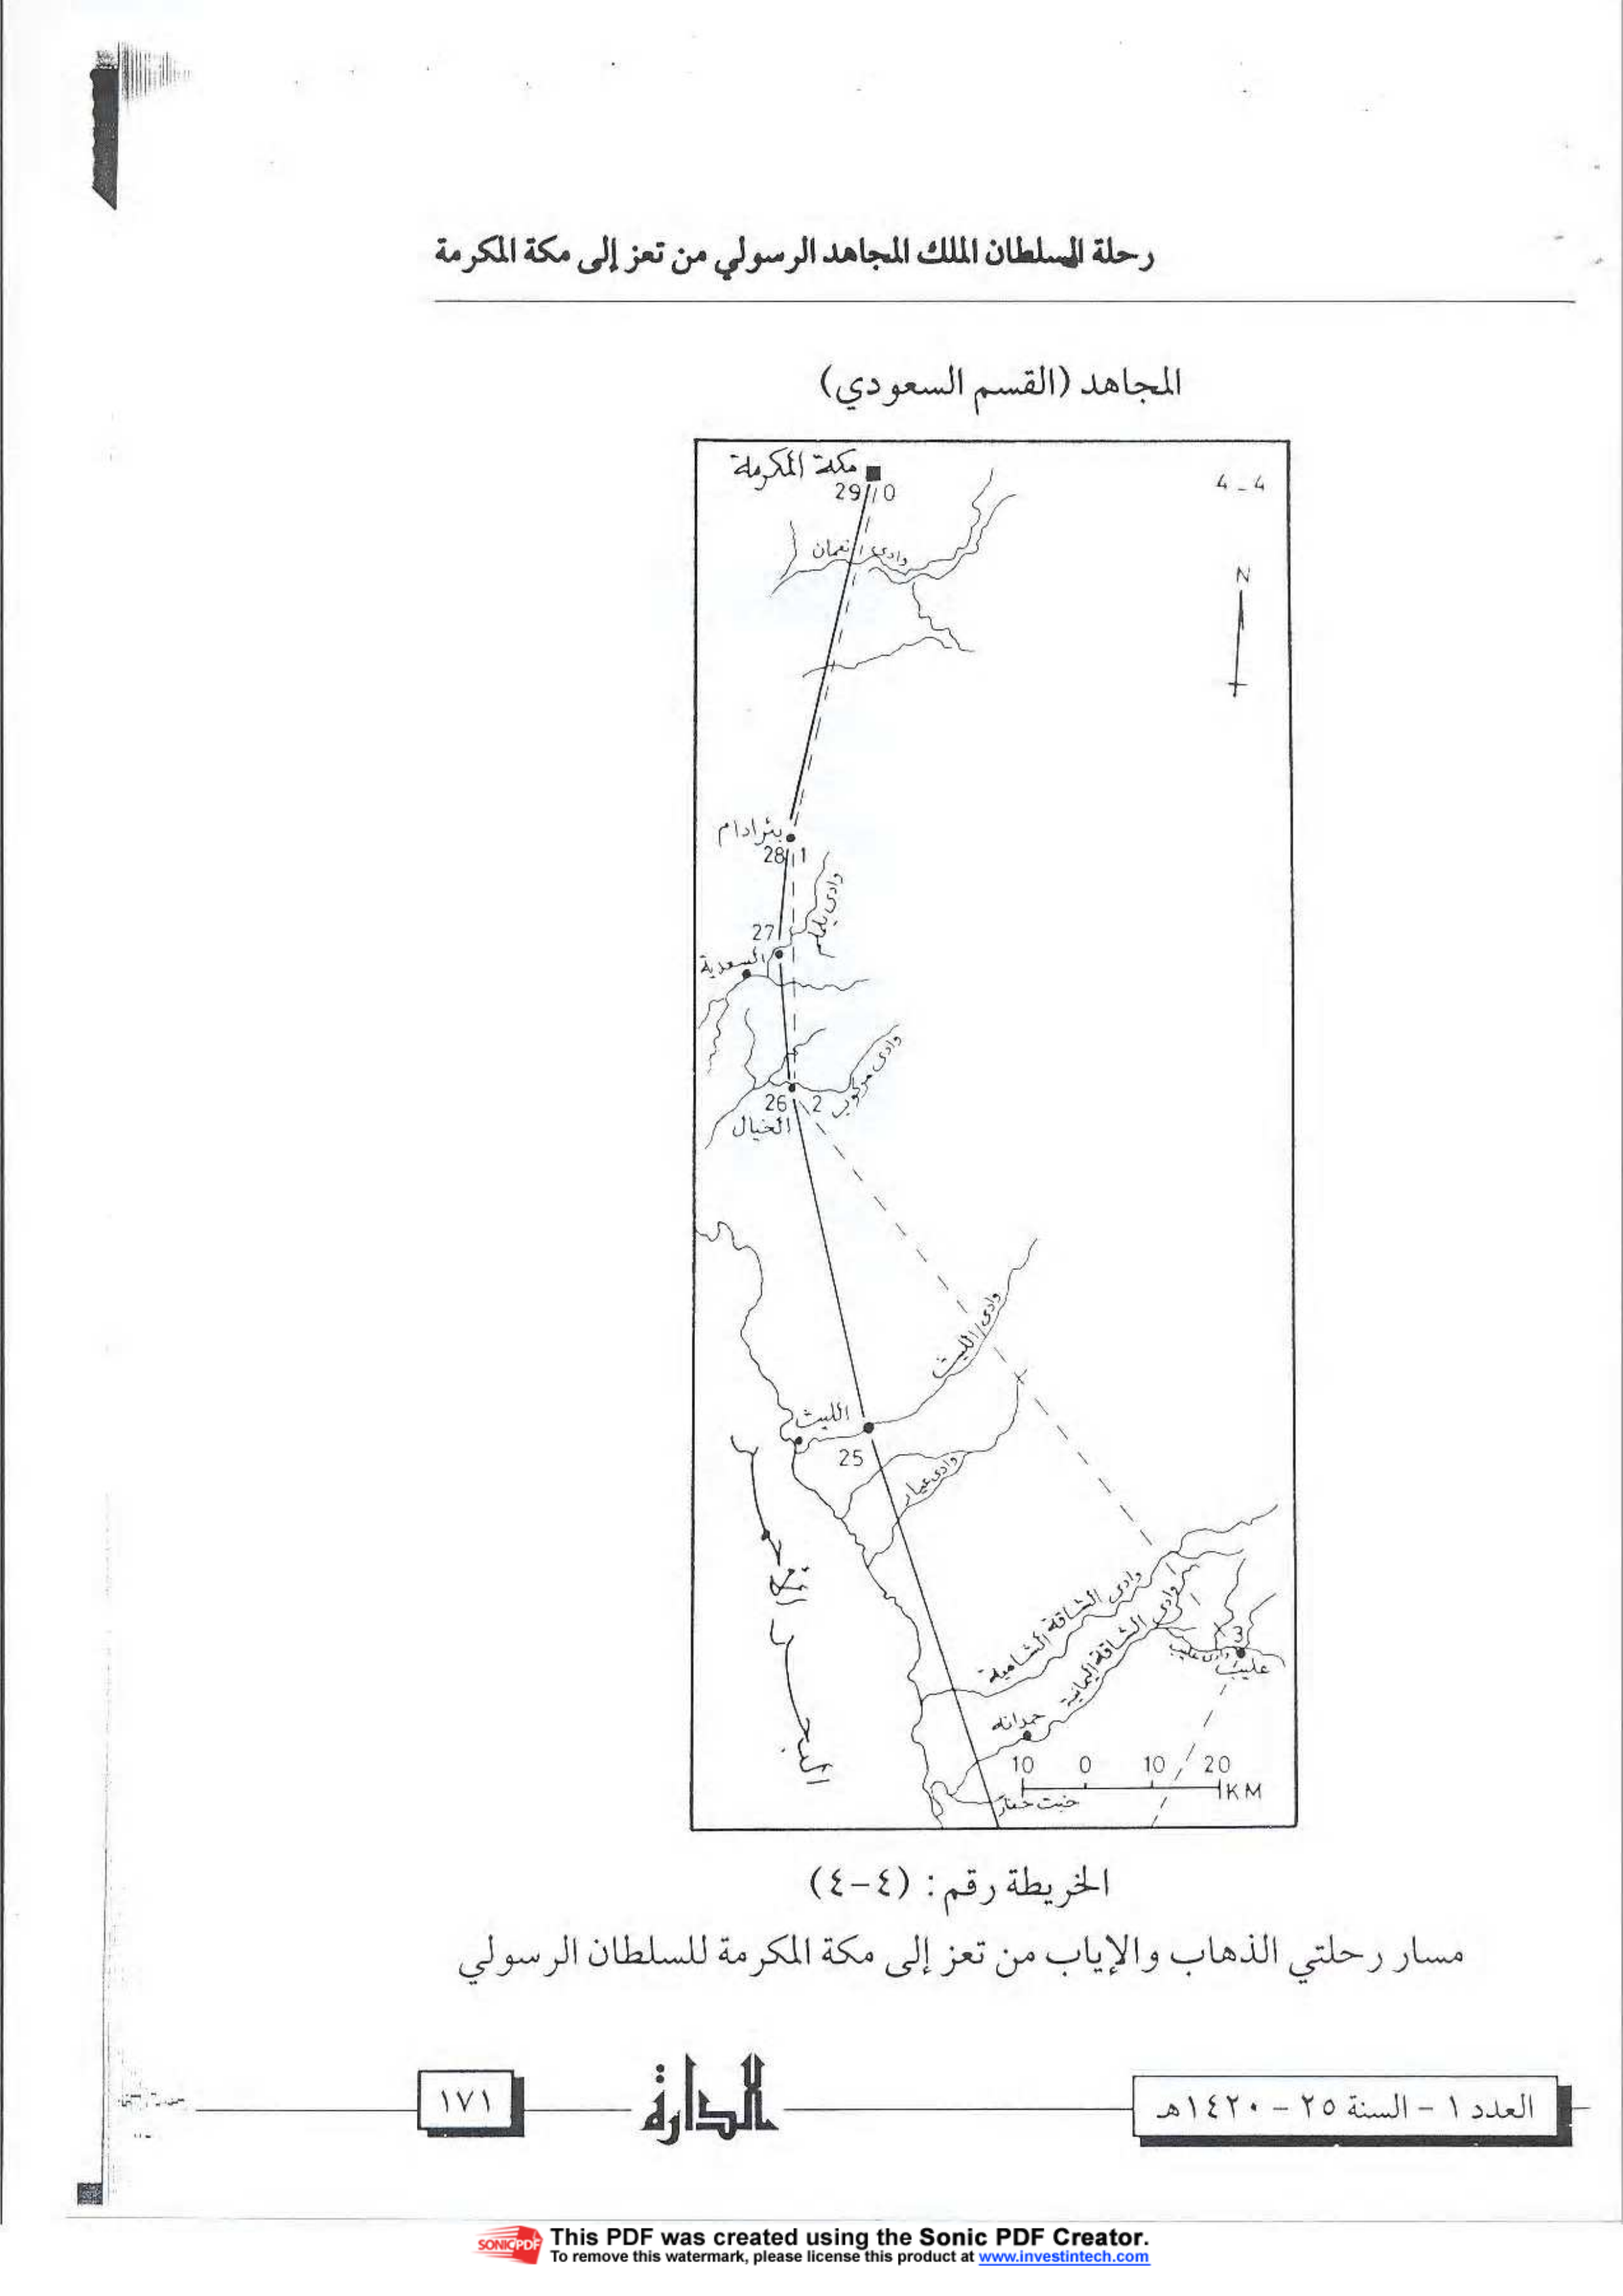 رحلة السلطان الملك المجاهد الرسولي من تعز إلى مكة المكرمة
المجاهد (القسم السعودي)
مكة المكرمة
4 - 4
29 0
وادى نعمان
N
بئر ادام
28 1
وادى يلملم
27
السعدية
وادى مركوب
26 2
الخيال
وادى الليث
الليث
25
وادى عيار
البحر الأحمر
وادى الشاقة الشامية
وادى الشاقة اليمانية
3
وادى عليب
عليب
حمدانه
10 0 10 20
KM
خبت حفار
الخريطة رقم: (٤-٤)
مسار رحلتي الذهاب والإياب من تعز إلى مكة المكرمة للسلطان الرسولي
العدد ١ - السنة ٢٥ - ١٤٢٠هـ
الدارة
١٧١
SONICPDF
This PDF was created using the Sonic PDF Creator.
To remove this watermark, please license this product at www.investintech.com